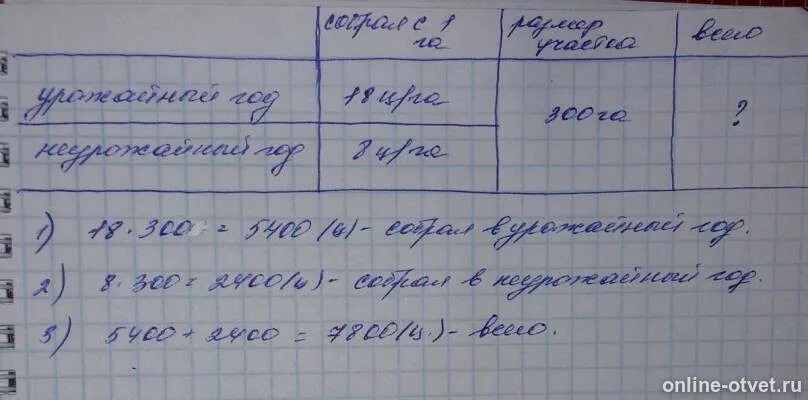 собрал с 1 га размер участка всего
урожайный год 18 ц/га 300 га ?
неурожайный год 8 ц/га
1) 18 · 300 = 5400 (ц) - собрал в урожайный год.
2) 8 · 300 = 2400 (ц) - собрал в неурожайный год.
3) 5400 + 2400 = 7800 (ц.) - всего.
online-otvet.ru